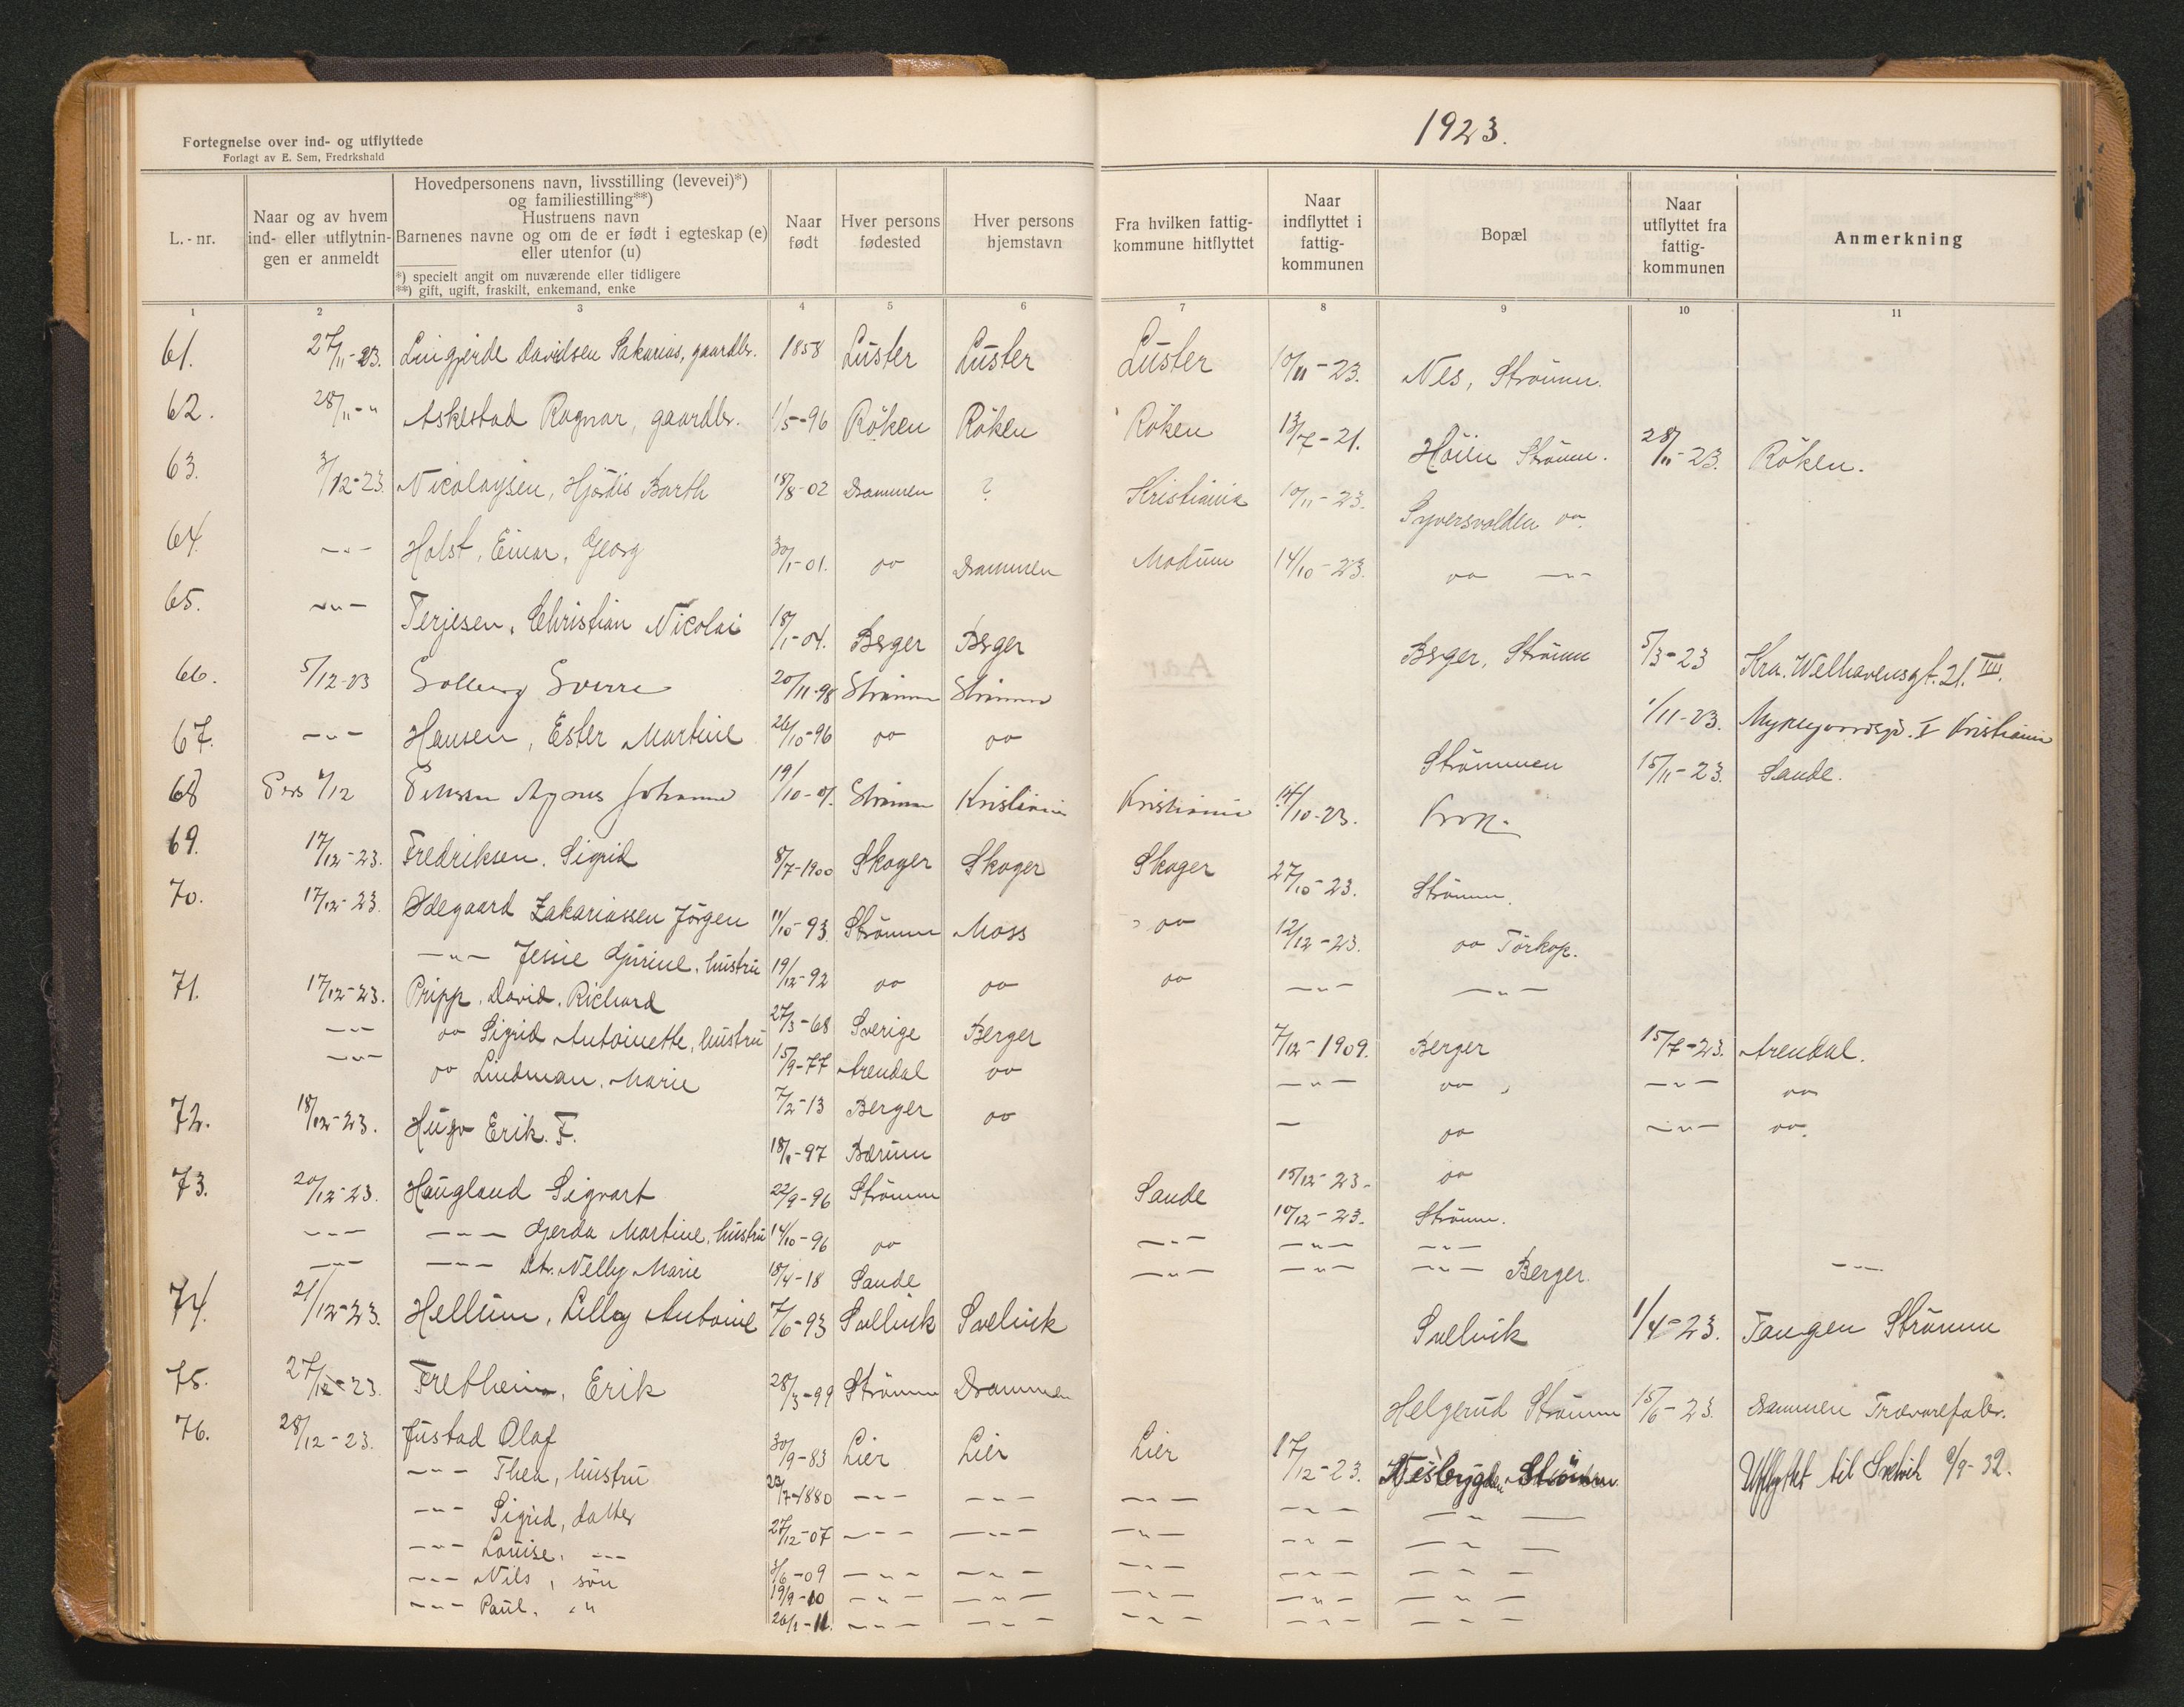 1923.
Fortegnelse over ind- og utflyttede
Forlagt av E. Sem, Fredrkshald
L.-nr.
Naar og av hvem ind- eller utflytningen er anmeldt
Hovedpersonens navn, livsstilling (levevei)*) og familiestilling**) Hustruens navn Barnenes navne og om de er født i egteskap (e) eller utenfor (u)
*) specielt angit om nuværende eller tidligere
**) gift, ugift, fraskilt, enkemand, enke
Naar født
Hver persons fødested
Hver persons hjemstavn
Fra hvilken fattigkommune hitflyttet
Naar indflyttet i fattigkommunen
Bopæl
Naar utflyttet fra fattigkommunen
Anmerkning
1 2 3 4 5 6 7 8 9 10 11
61. 27/11-23. Lingjerde Davidsen Sakarias, gaardbr. 1858 Luster Luster Luster 10/11-23. Nes, Strømm.
62. 28/11-" Askestad Ragnar, gaardbr. 1/5-96 Röken Röken Röken 13/7-21. Höien Strömm. 28/11-23. Röken.
63. 3/12-23. Nicolaysen, Hjödis Barth 18/8-02 Drammen ? Kristiania 10/11-23. Syversvolden oo.
64. -"- Holst, Einar, Georg 30/1-01. oo Drammen Modum 14/10-23. oo -"-
65. -"- Terjesen, Christian Nicolai 18/1-04. Berger Berger Berger, Strömm 5/3-23 Kra. Welhavensgt. 21. IIII.
66. 5/12-23 Solberg Sverre 20/11-98 Strømm Strømm 1/11-23. I Kristiania
67. -"- Hansen, Ester Martine 26/10-96 oo oo Strömmen 15/11-23. Sande.
68 /12 Agnes Johanne 19/10-01. Strømm Kristiania Kristiania 14/10-23. Krok.
69. 17/12-23. Fredriksen, Sigrid 8/7-1900 Skoger Skoger Skoger 27/10-23. Strömm.
70. 17/12-23. Ødegaard Zakariassen Jörgen 11/10-93. Strömm Moss oo 12/12-23. oo Törkop.
-"- Jessie Gurine, hustru 19/12-92 oo oo oo -"- -"-
71. 17/12-23. Pripp, David, Richard 27/3-68 Sverige Berger 7/12-1909. Berger 15/7-23. Arendal.
-"- oo Sigrid Antoinette, hustru 15/9-77 Arendal oo -"- oo -"- oo
-"- oo Lindman, Marie 7/2-13 Berger oo - oo -"- oo.
72. 18/12-23. Hugo Erik. F. 18/1-97 Bærum 15/12-23. oo
73. 20/12-23. Haugland Sigvart 22/9-96 Strömm Sande 10/12-23. Strømm.
-"- -"- Gerda Martine, hustru 14/10-96 oo -"- -"- -"-
-"- -"- Dt. Nelly Marie 18/4-18 Sande -"- -"- -"- Berger. -"-
74. 21/12-23. Hellum, Lilly Antonie 7/6-93 Svelvik Svelvik Svelvik 1/4-23. Tangen Strømm
75. 27/12-23. Fretheim, Erik 28/3-99 Strömm Drammen Helgerud Strömm 15/6-23. Drammen Trævarefabr.
76. 28/12-23. Justad Olaf 30/9-83 Lier Lier Lier 17/12-23. Nesbygden Strømm Utflyttet til Svelvik 9/9-32.
-"- Thea, hustru 23/7-1880 -"- -"- -"- -"- -"-
-"- Sigrid, datter 27/12-07 -"- -"- -"- -"- -"-
-"- Louise, -"- 3/6-09 -"- -"- -"- -"- -"-
-"- Nils, sön 19/9-10 -"- -"- -"- -"- -"-
-"- Paul, " 20/1-11. -"- -"- -"- -"- -"-